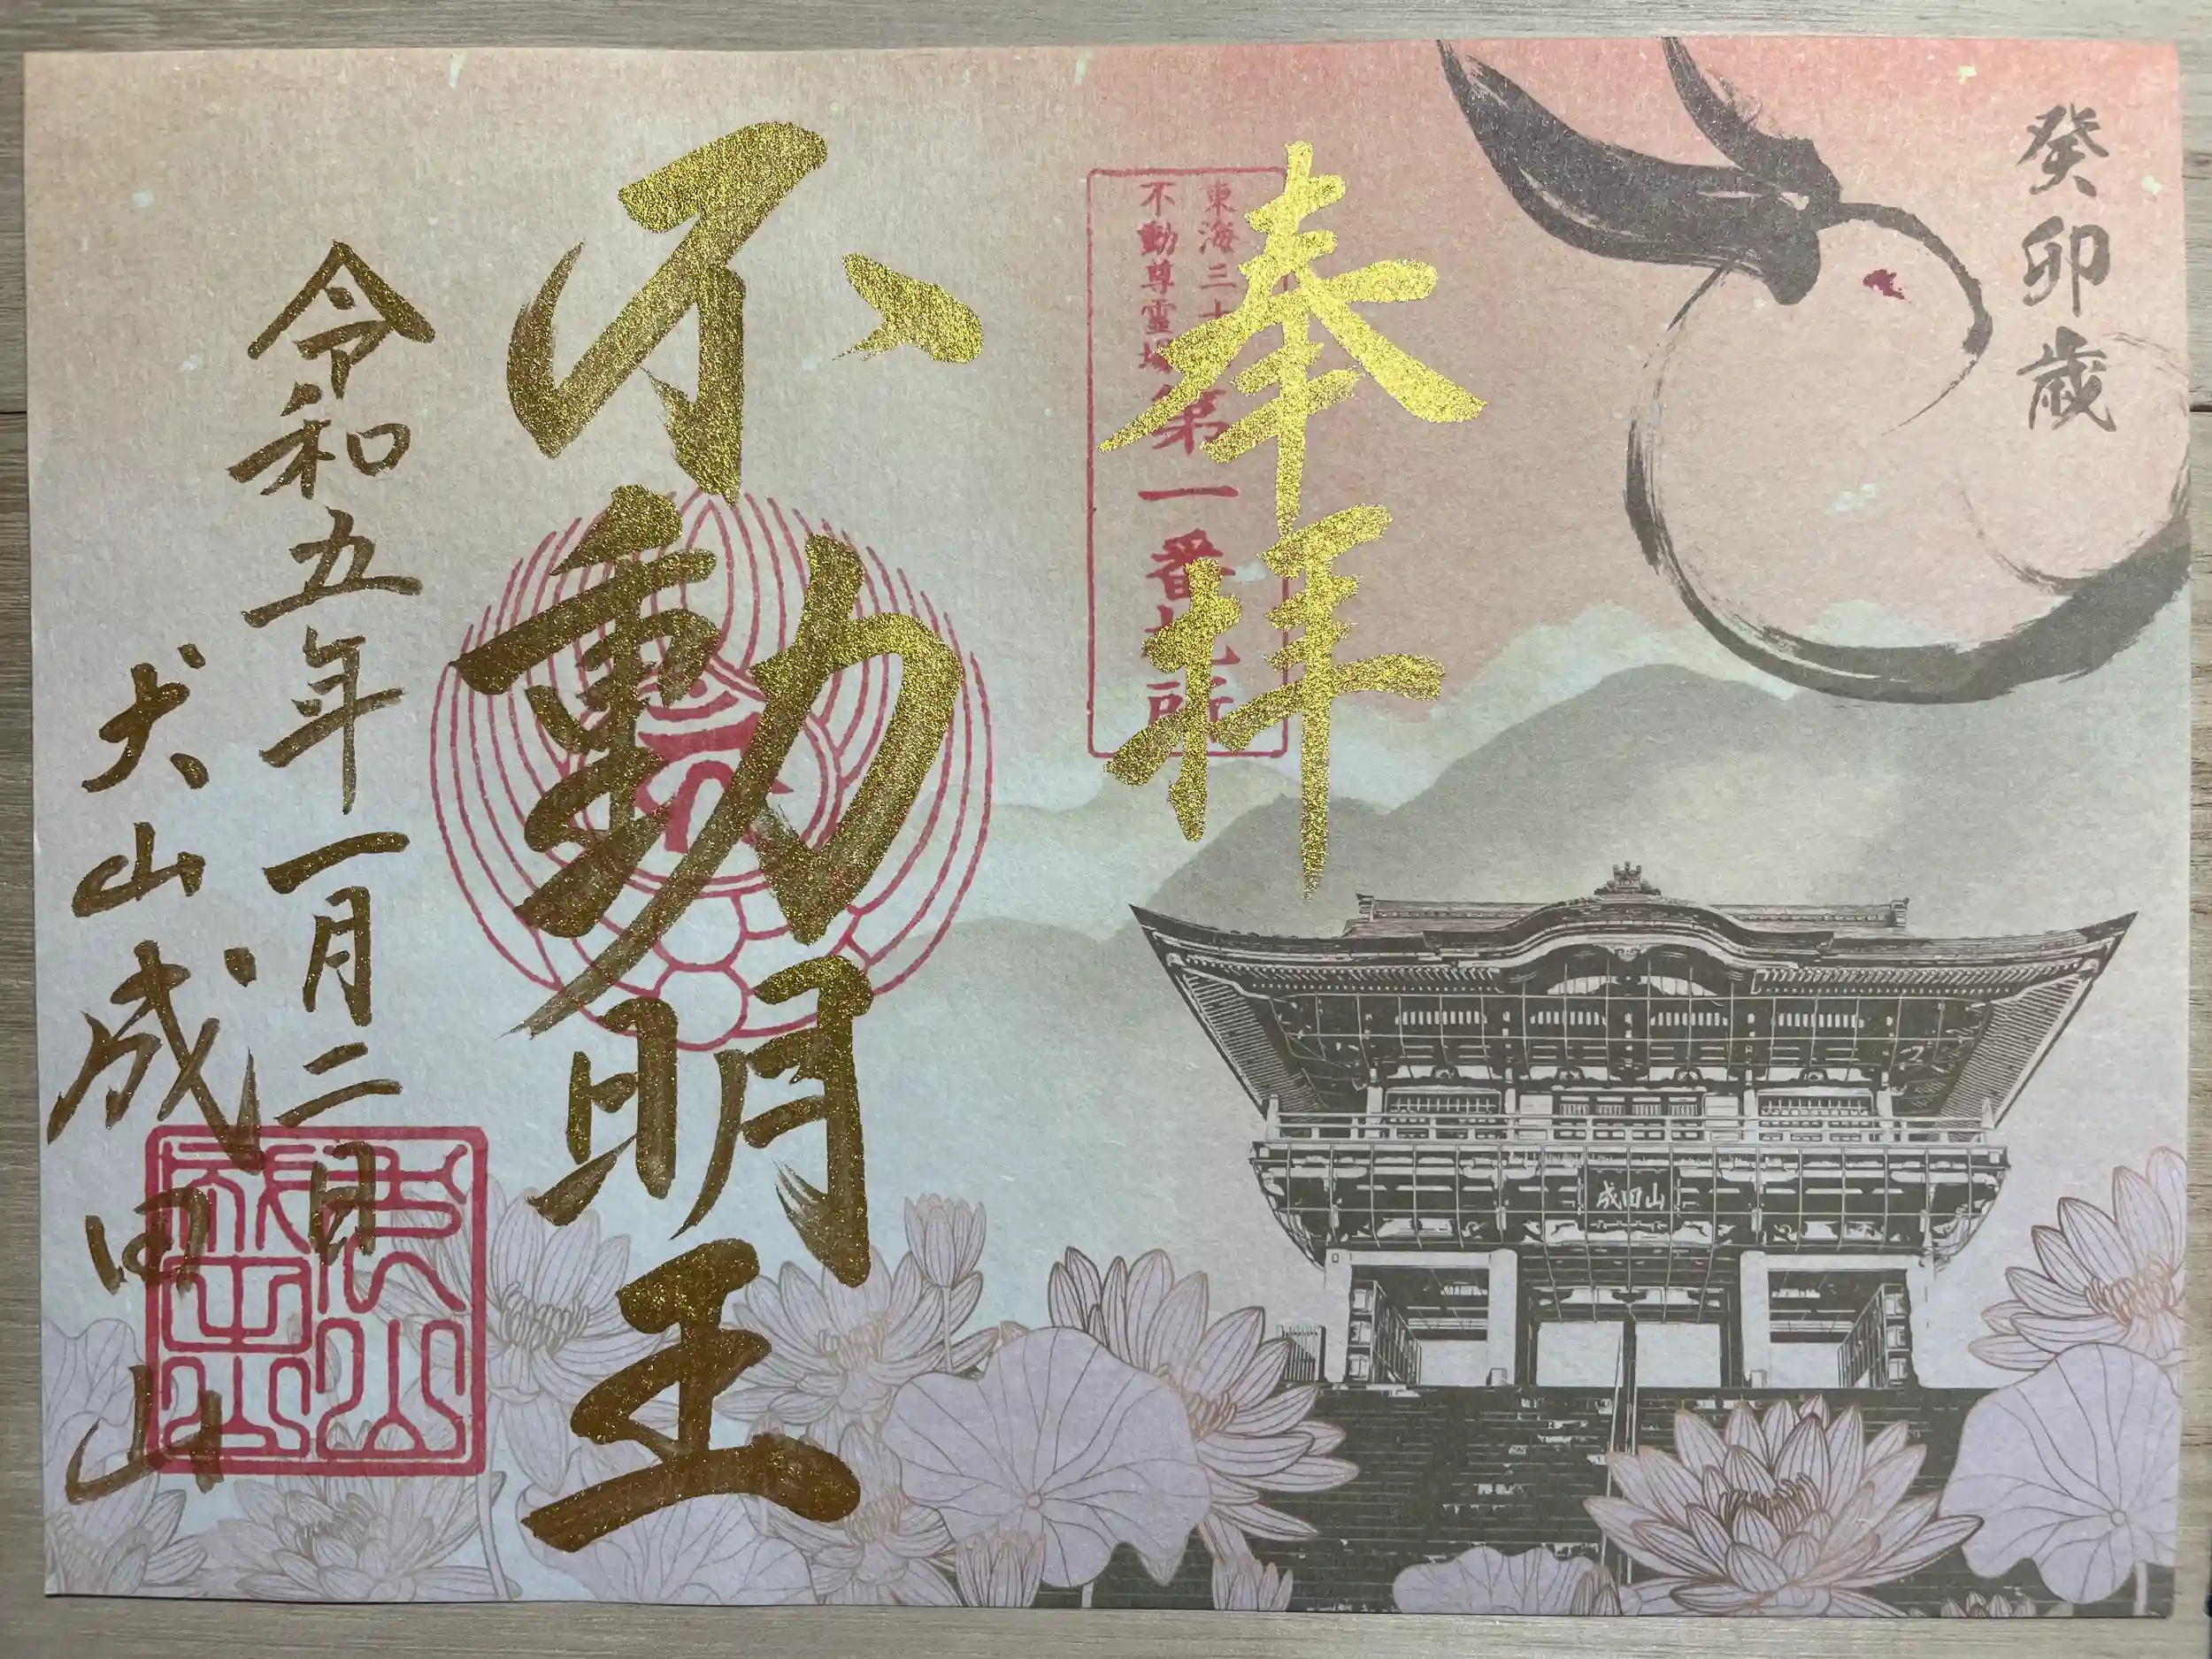 癸卯歳
奉拝
東海三十
不動尊霊場
第一番札所
不動明王
令和五年一月二日
犬山成田山
成田山